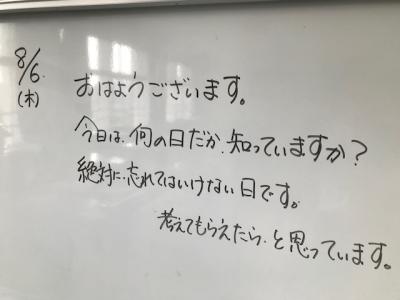 8/6.
(木)
おはようございます。
今日は、何の日だか、知っていますか?
絶対に、忘れてはいけない日です。
考えてもらえたら、と思っています。